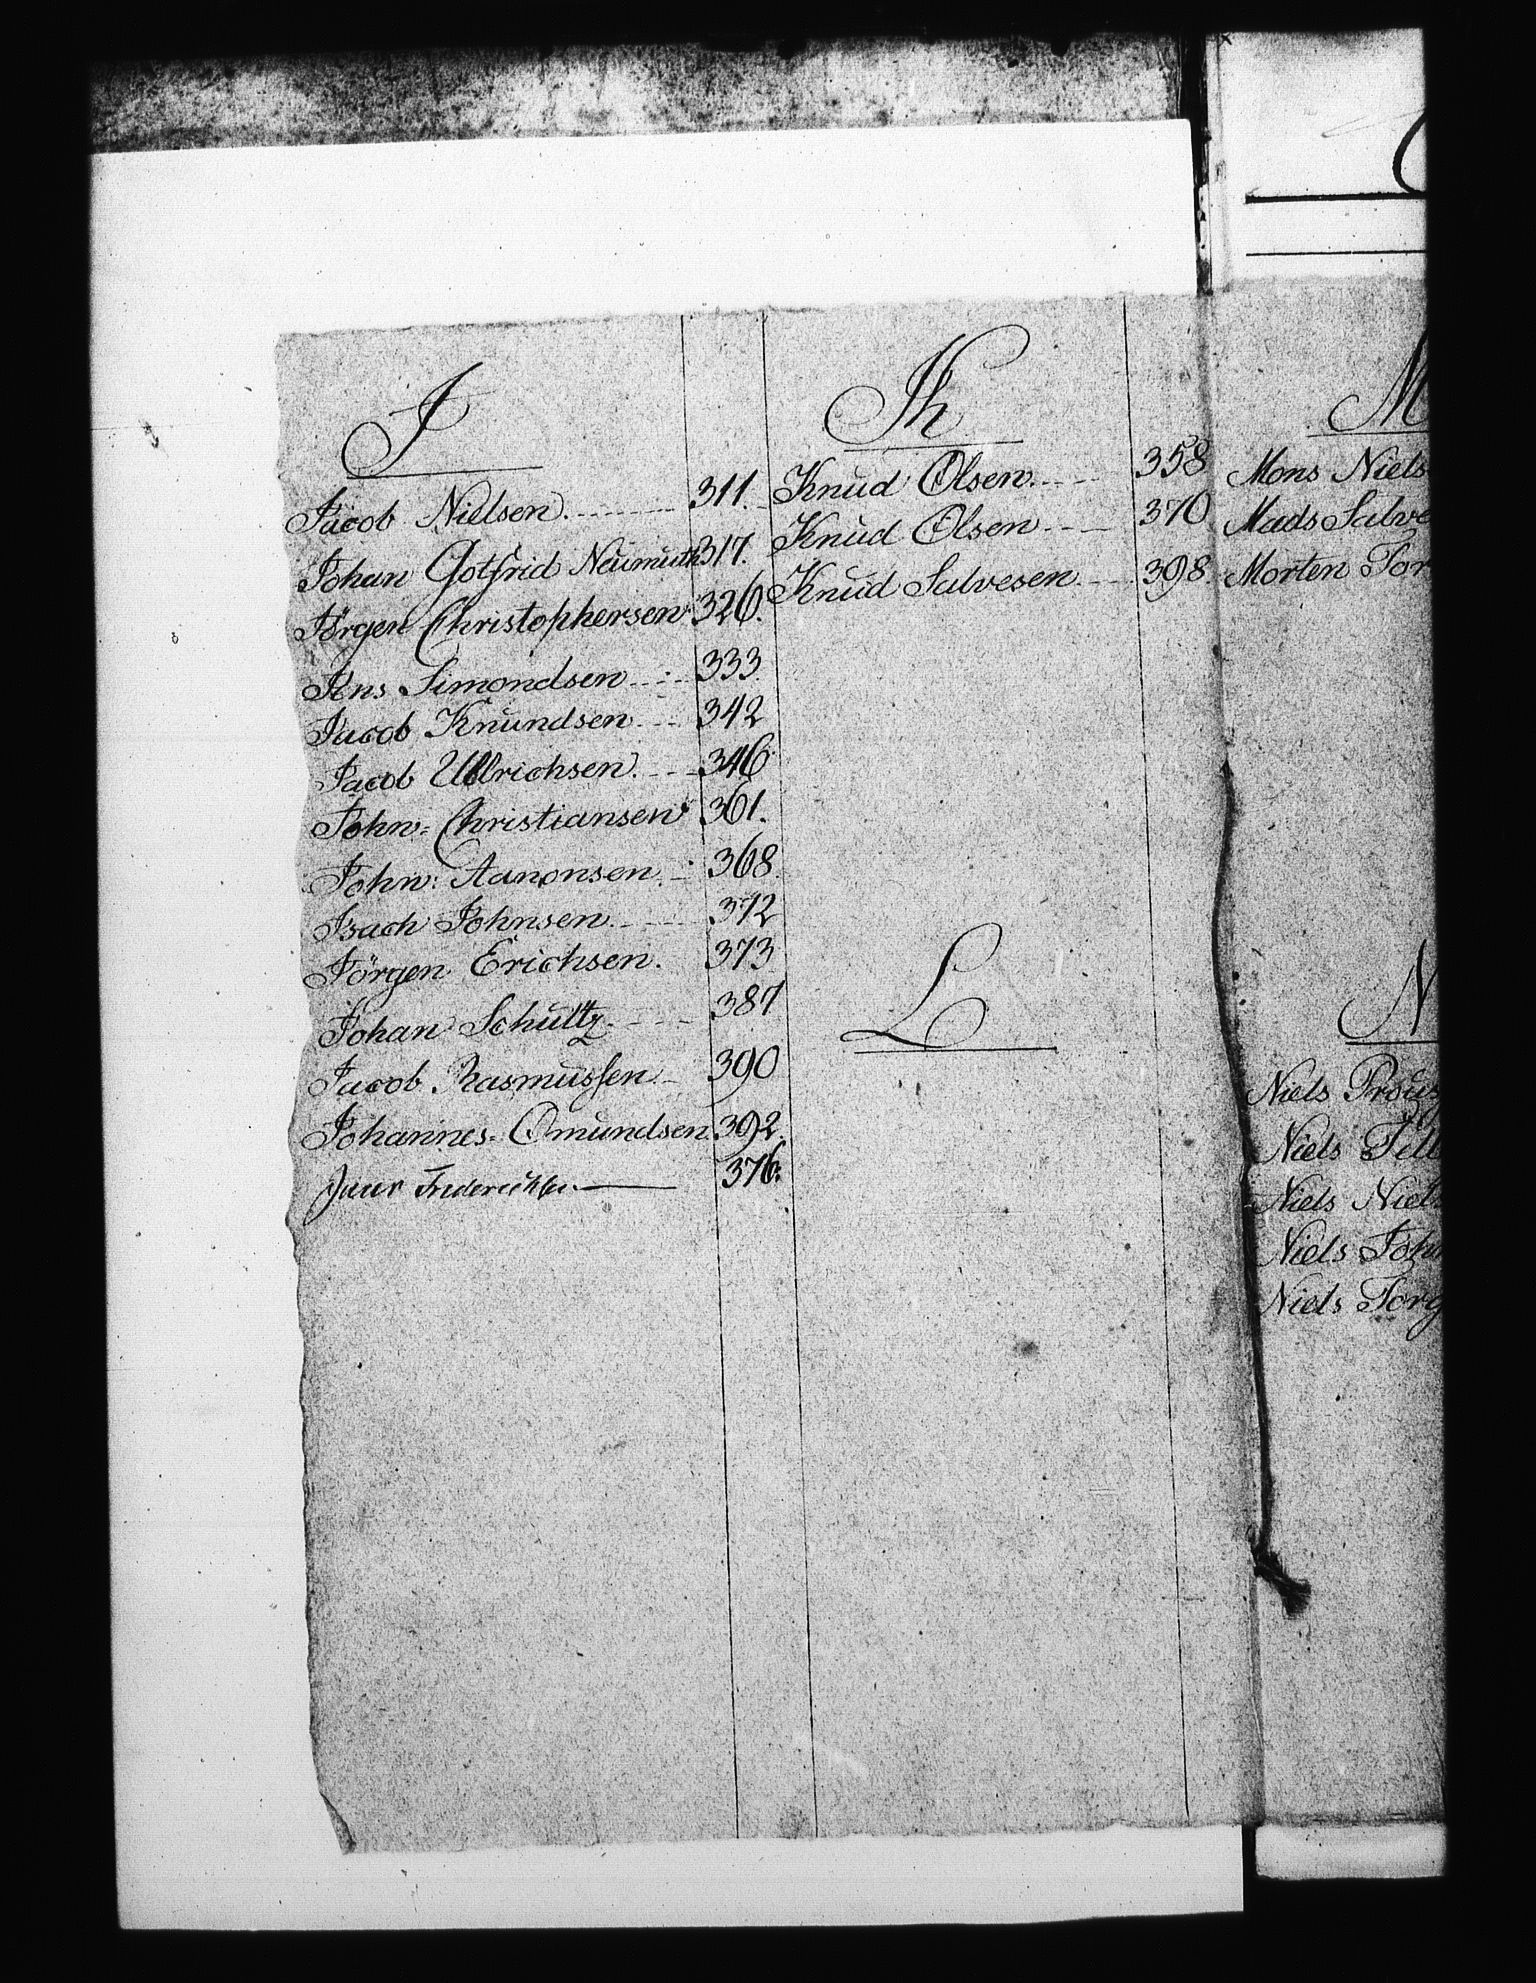 I
Jacob Nielsen 311.
Johan Gotfrid Neumuth 317.
Jörgen Christophersen 326.
Jens Simondsen 333
Jacob Knundsen 342
Jacob Ullrichsen. 346
John: Christiansen 361.
John: Aanonsen. 368
Isach Johnsen. 372
Jörgen Erichsen. 373
Johan Schultz. 387
Jacob Rasmussen 390
Johannes. Omundsen. 392.
376.
K
Knud Olsen. 358
Knud Olsen 370
Knud Salvesen. 398.
L
M
Mons Niels
Mads Salve
Morten Tor
N
Niels
Niels
Niels Niels
Niels John
Niels Torg